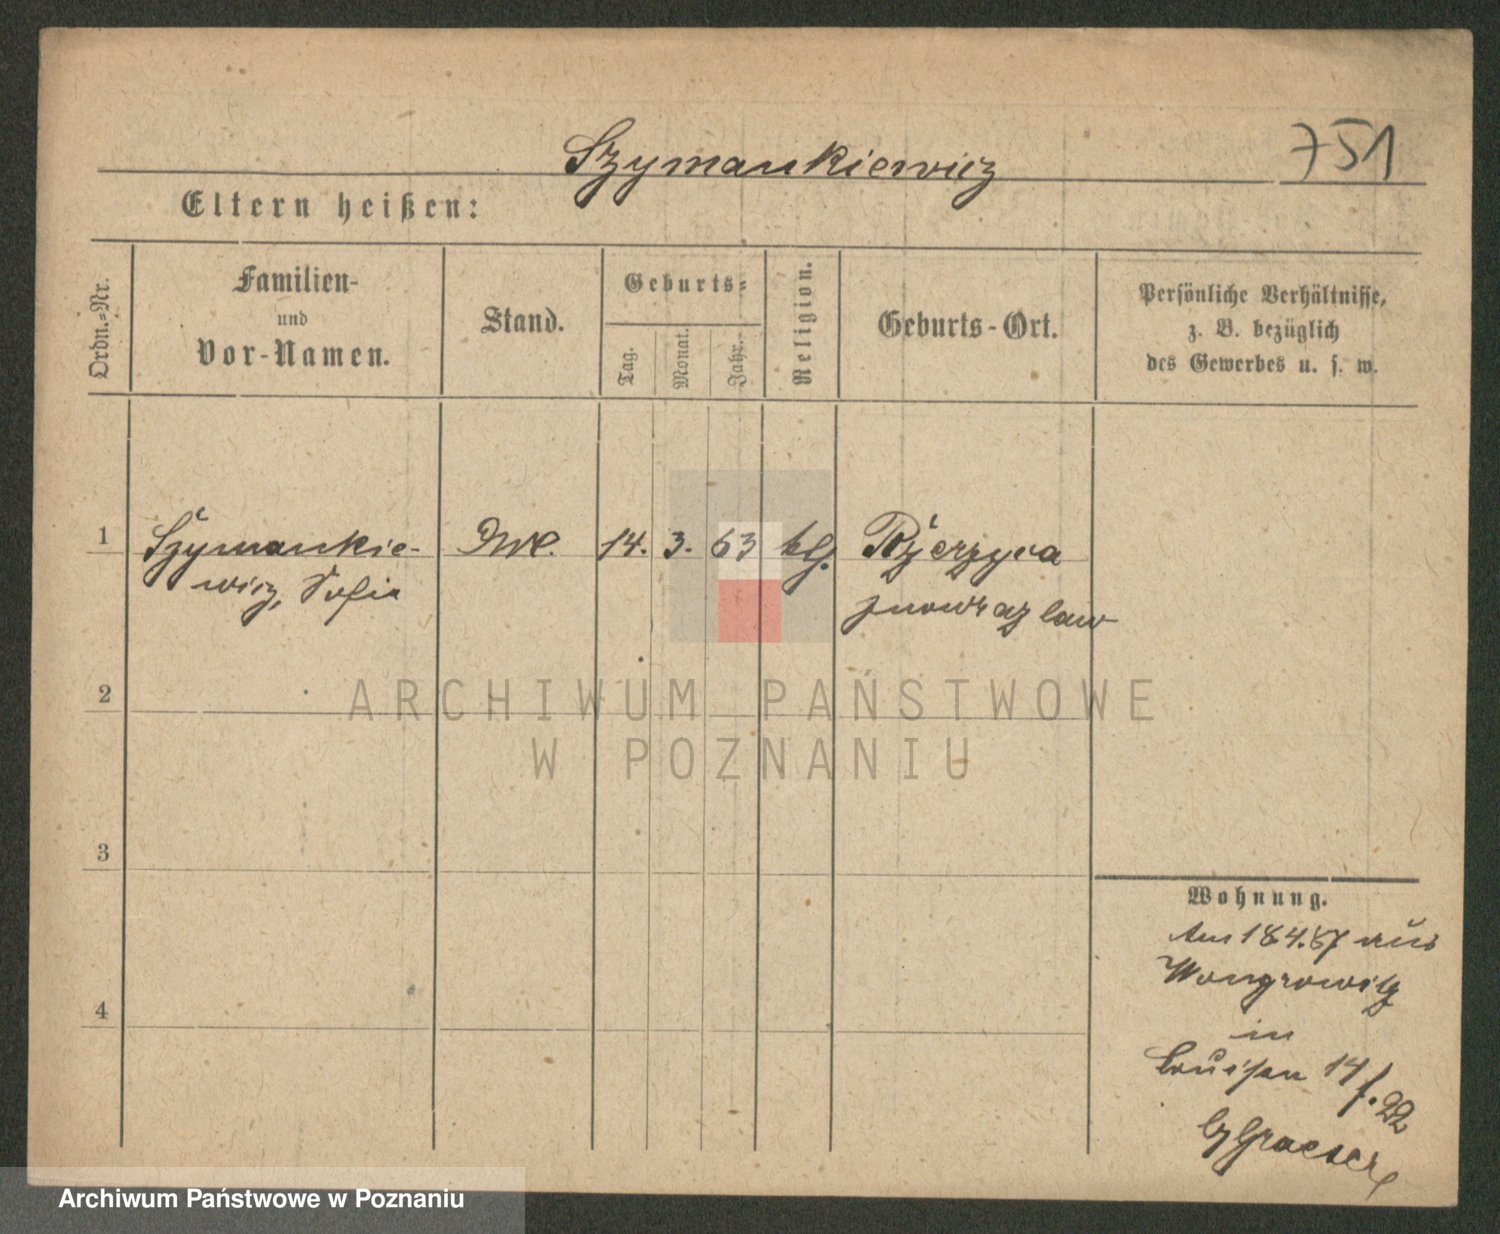 Szymankiewicz
751
Eltern heißen:
Ordn.-Nr.
Familien-
und
Vor-Namen.
Stand.
Geburts-
Tag.
Monat.
Jahr.
Religion.
Geburts-Ort.
Persönliche Verhältnisse,
z. B. bezüglich
des Gewerbes u. s. w.
1
Szymankie-
wicz, Sofia
14.
3.
63
Inowrazlaw
2
ARCHIWUM PAŃSTWOWE
W POZNANIU
3
4
Wohnung.
Am 18 4. 87 aus
Wongrowitz
in
Louisen 14
Archiwum Państwowe w Poznaniu